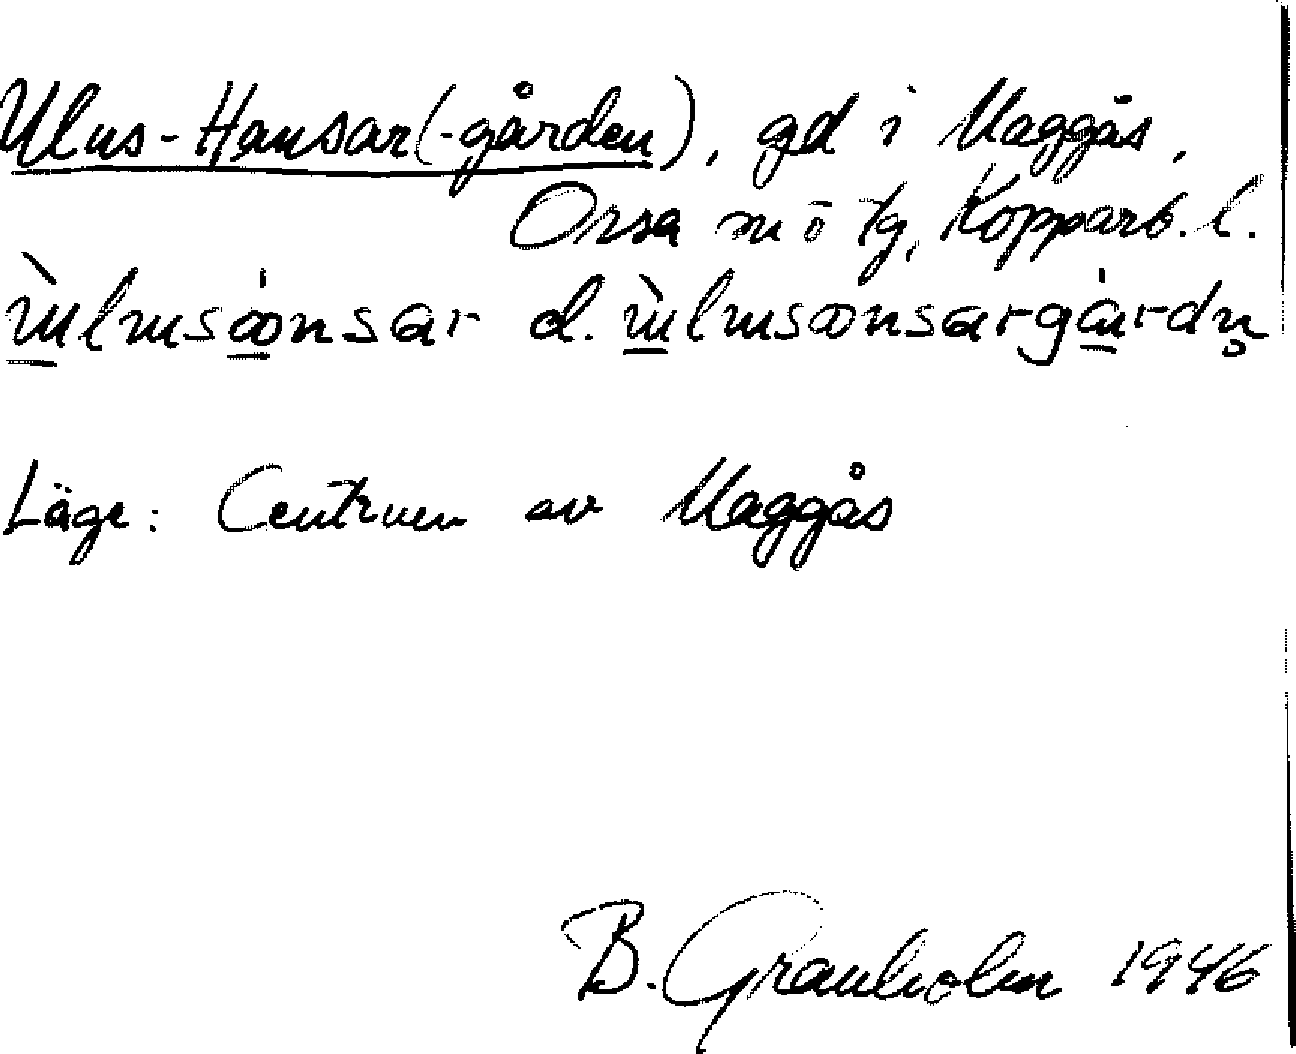 Ulus-Hansar(-gården), gd i Maggås,
Orsa sn o tg, Kopparb. l.
d.
Läge: Centrum av Maggås
B. Granholm 1946